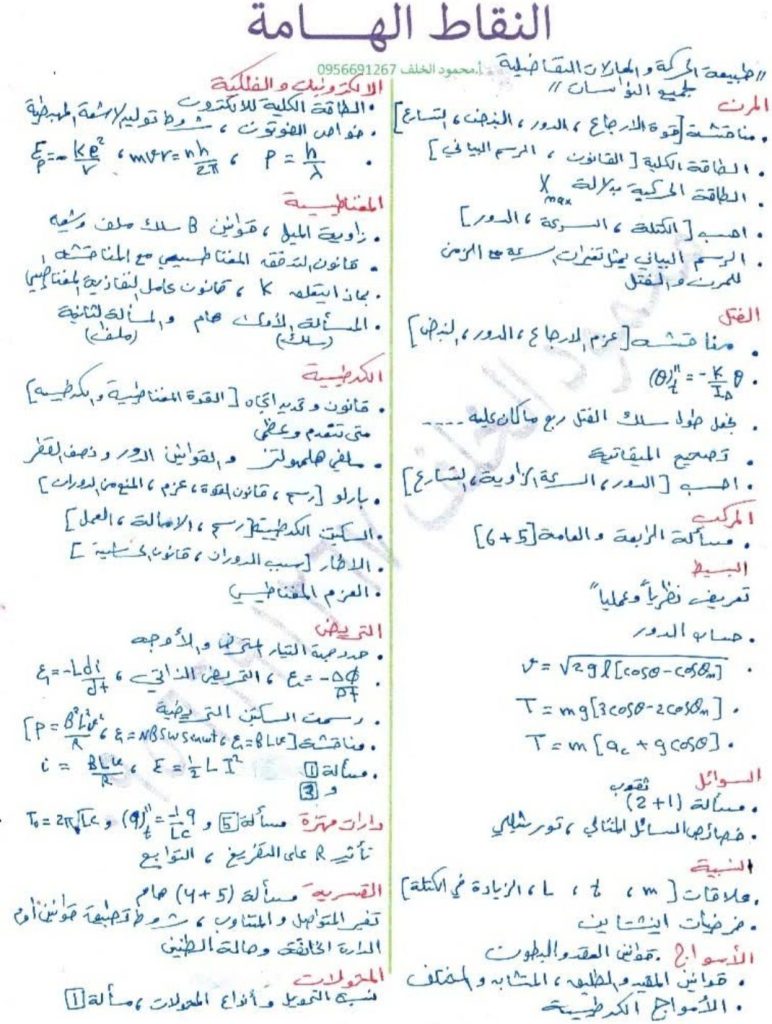 النقاط الهـــامة
أ.محمود الخلف 0956691267
// طبيعة الحركة و المعادلات التفاضلية
لجميع النواسات //
المرن
. مناقشة [قوة الارجاع ، الدور ، النبض ، التسارع]
. الطاقة الكلية [القانون ، الرسم البياني]
. الطاقة الحركية بدلالة Xmax
. احسب [الكتلة ، السرعة ، الدور]
. الرسم البياني يمثل تغيرات السرعة مع الزمن
للمرن و الفتل
الفتل
. مناقشة [عزم الارجاع ، الدور ، النبض]
. (θ)ₜ'' = -K/I_Δ θ
. نجعل طول سلك الفتل ربع ما كان عليه .....
. تصحيح الميقاتية
. احسب [الدور ، السرعة الزاوية ، التسارع]
المركب
. مسألة الرابعة و العامة [5+6]
البسيط
تعريف نظرياً وعملياً
. حساب الدور
. v = √2gl[cosθ-cosθm]
. T = mg[3cosθ-2cosθm]
. T = m[ac+gcosθ]
السوائل
. مسألة (1+2) ثقوب
. خصائص السائل المثالي ، تورشيلي
النسبية
. علاقات [m ، t ، L ، الزيادة في الكتلة]
. فرضيات اينشتاين
الأمواج . قوانين العقد و البطون
. قوانين المقيد و الطليق ، المتشابه و المختلف
. الأمواج الكهرطيسية
الالكترونيات و الفلكية
. الطاقة الكلية للالكترون
. خواص الفوتون ، شروط توليد الاشعة المهبطية
. Ep = -ke²/r ، mvr = nh/2π ، P = h/λ
المغناطيسية
. زاوية الميل ، قوانين B سلك ملف وشيعة
. قانون التدفق المغناطيسي مع المناقشة
. بماذا يتعلق K ، قانون عامل النفاذية المغناطيسي
. المسألة الأولى هام و المسألة الثانية
(سلك) (ملف)
الكهرطيسية
. قانون و تحديد اتجاه [القوة المغناطيسية و الكهرطيسية]
متى تنعدم و عظمى
. ملفي هلمهولتز و القوانين الدور و نصف القطر
. بارلو [رسم ، قانون القوة ، عزم ، المنع من الدوران]
. السكتين الكهرطيسية [رسم ، الامالة ، العمل]
. الاطار [سبب الدوران ، قانون الحساسية]
. العزم المغناطيسي
التحريض
. حدد جهة التيار المتحرض و الأوجه
. ε = -ΔΦ/Δt ، التحريض الذاتي ، ε = -Ldi/dt
. رسمت السكتين التحريضية
. مناقشة [ε=BLv ، ε=NBSω sinωt ، P = B²L²v²/R]
. مسألة 1 i = BLv/R ، E = ½ L I²
و 3
دارات مهتزة مسألة 5 و (q)ₜ'' = -1/Lc q و T₀ = 2π√Lc
تأثير R على التفريغ ، التوابع
القسرية مسألة (5+4) هام
تفسير المتواصل و المتناوب ، شروط تطبيق قوانين أوم
الدارة الخانقة و حالة الطنين
المحولات
نسبة التحويل و أنواع المحولات ، مسألة 1